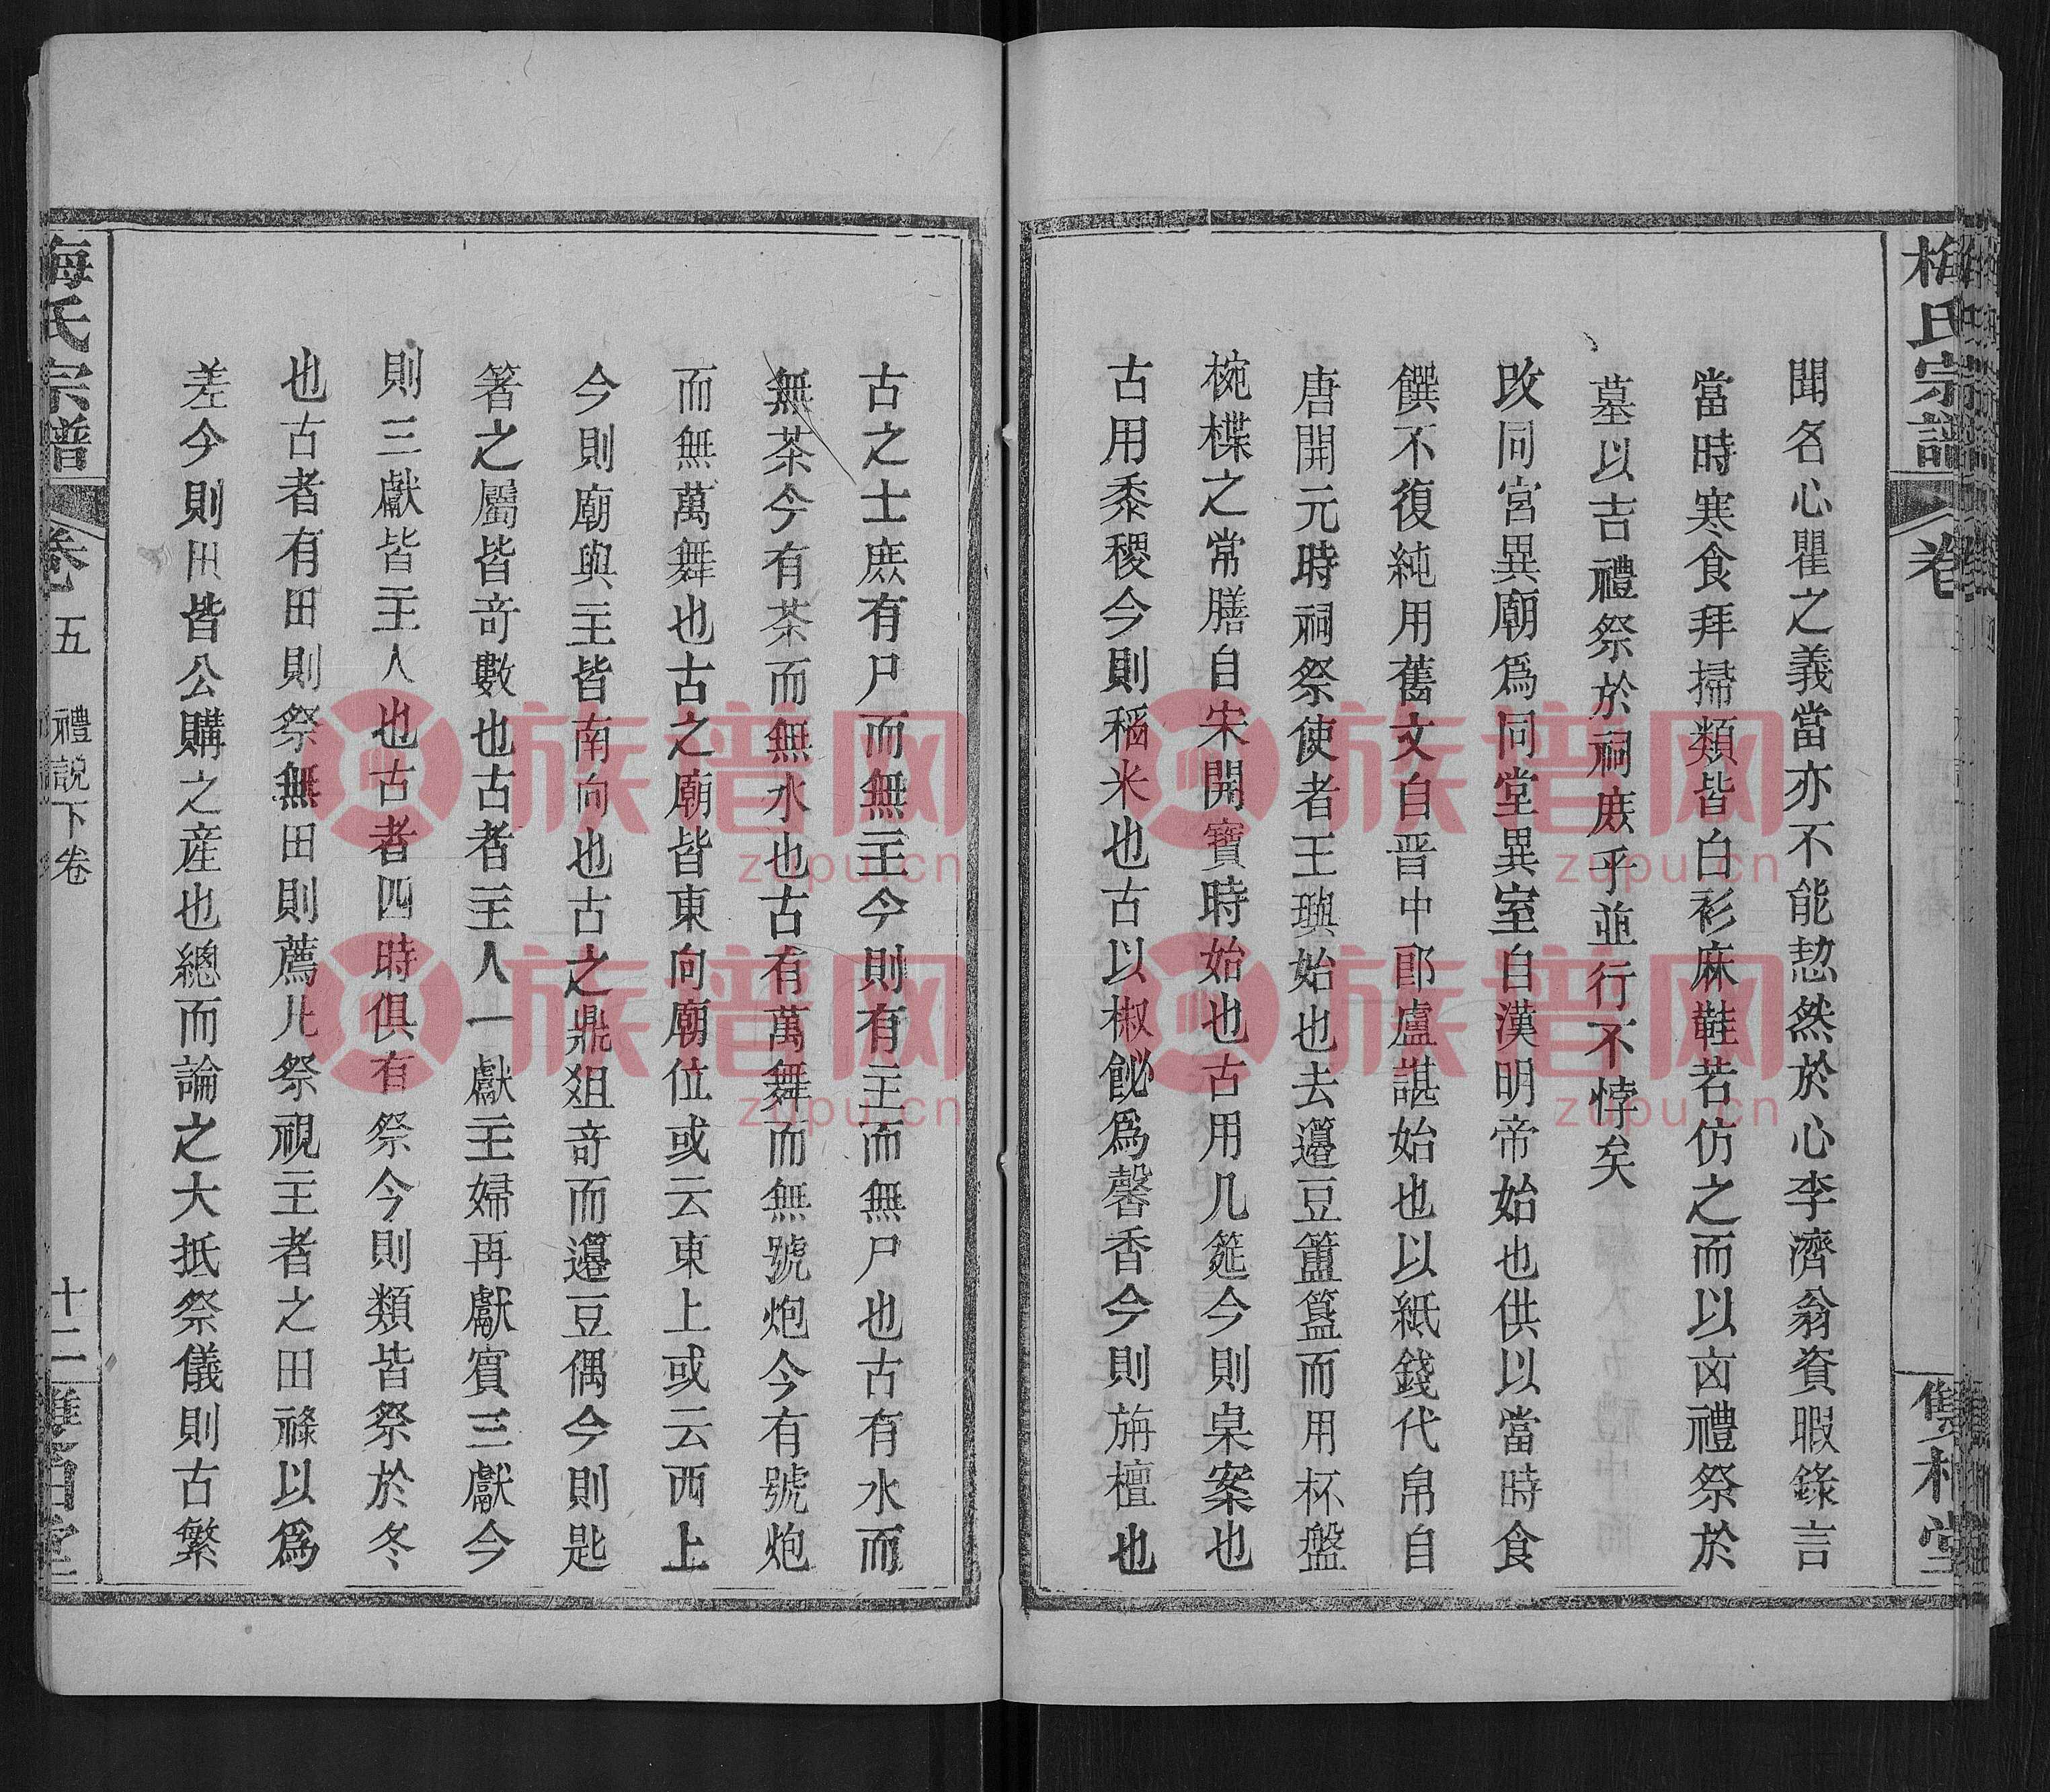 梅氏宗譜
卷
聞名心瞿之義當亦不能恝然於心李濟翁資暇錄言
當時寒食拜掃類皆白衫麻鞋若仿之而以凶禮祭於
墓以吉禮祭於祠庶乎並行不悖矣
改同宮異廟爲同堂異室自漢明帝始也供以當時食
饌不復純用舊文自晋中郎盧諶始也以紙錢代帛自
唐開元時祠祭使者王璵始也去籩豆簠簋而用杯盤
椀楪之常膳自宋開寶時始也古用几筵今則桌案也
古用黍稷今則稻米也古以椒飶爲馨香今則旃檀也
古之士庶有尸而無主今則有主而無尸也古有水而
無茶今有茶而無水也古有萬舞而無號炮今有號炮
而無萬舞也古之廟皆東向廟位或云東上或云西上
今則廟與主皆南向也古之鼎俎奇而籩豆偶今則匙
箸之屬皆奇數也古者主人一獻主婦再獻賓三獻今
則三獻皆主人也古者四時俱有祭今則類皆祭於冬
也古者有田則祭無田則薦凡祭視主者之田祿以爲
差今則田皆公購之產也總而論之大抵祭儀則古繁
梅氏宗譜
卷五
禮說下卷
十二
堂
族谱网
zupu.cn
族谱网
zupu.cn
族谱网
zupu.cn
族谱网
zupu.cn